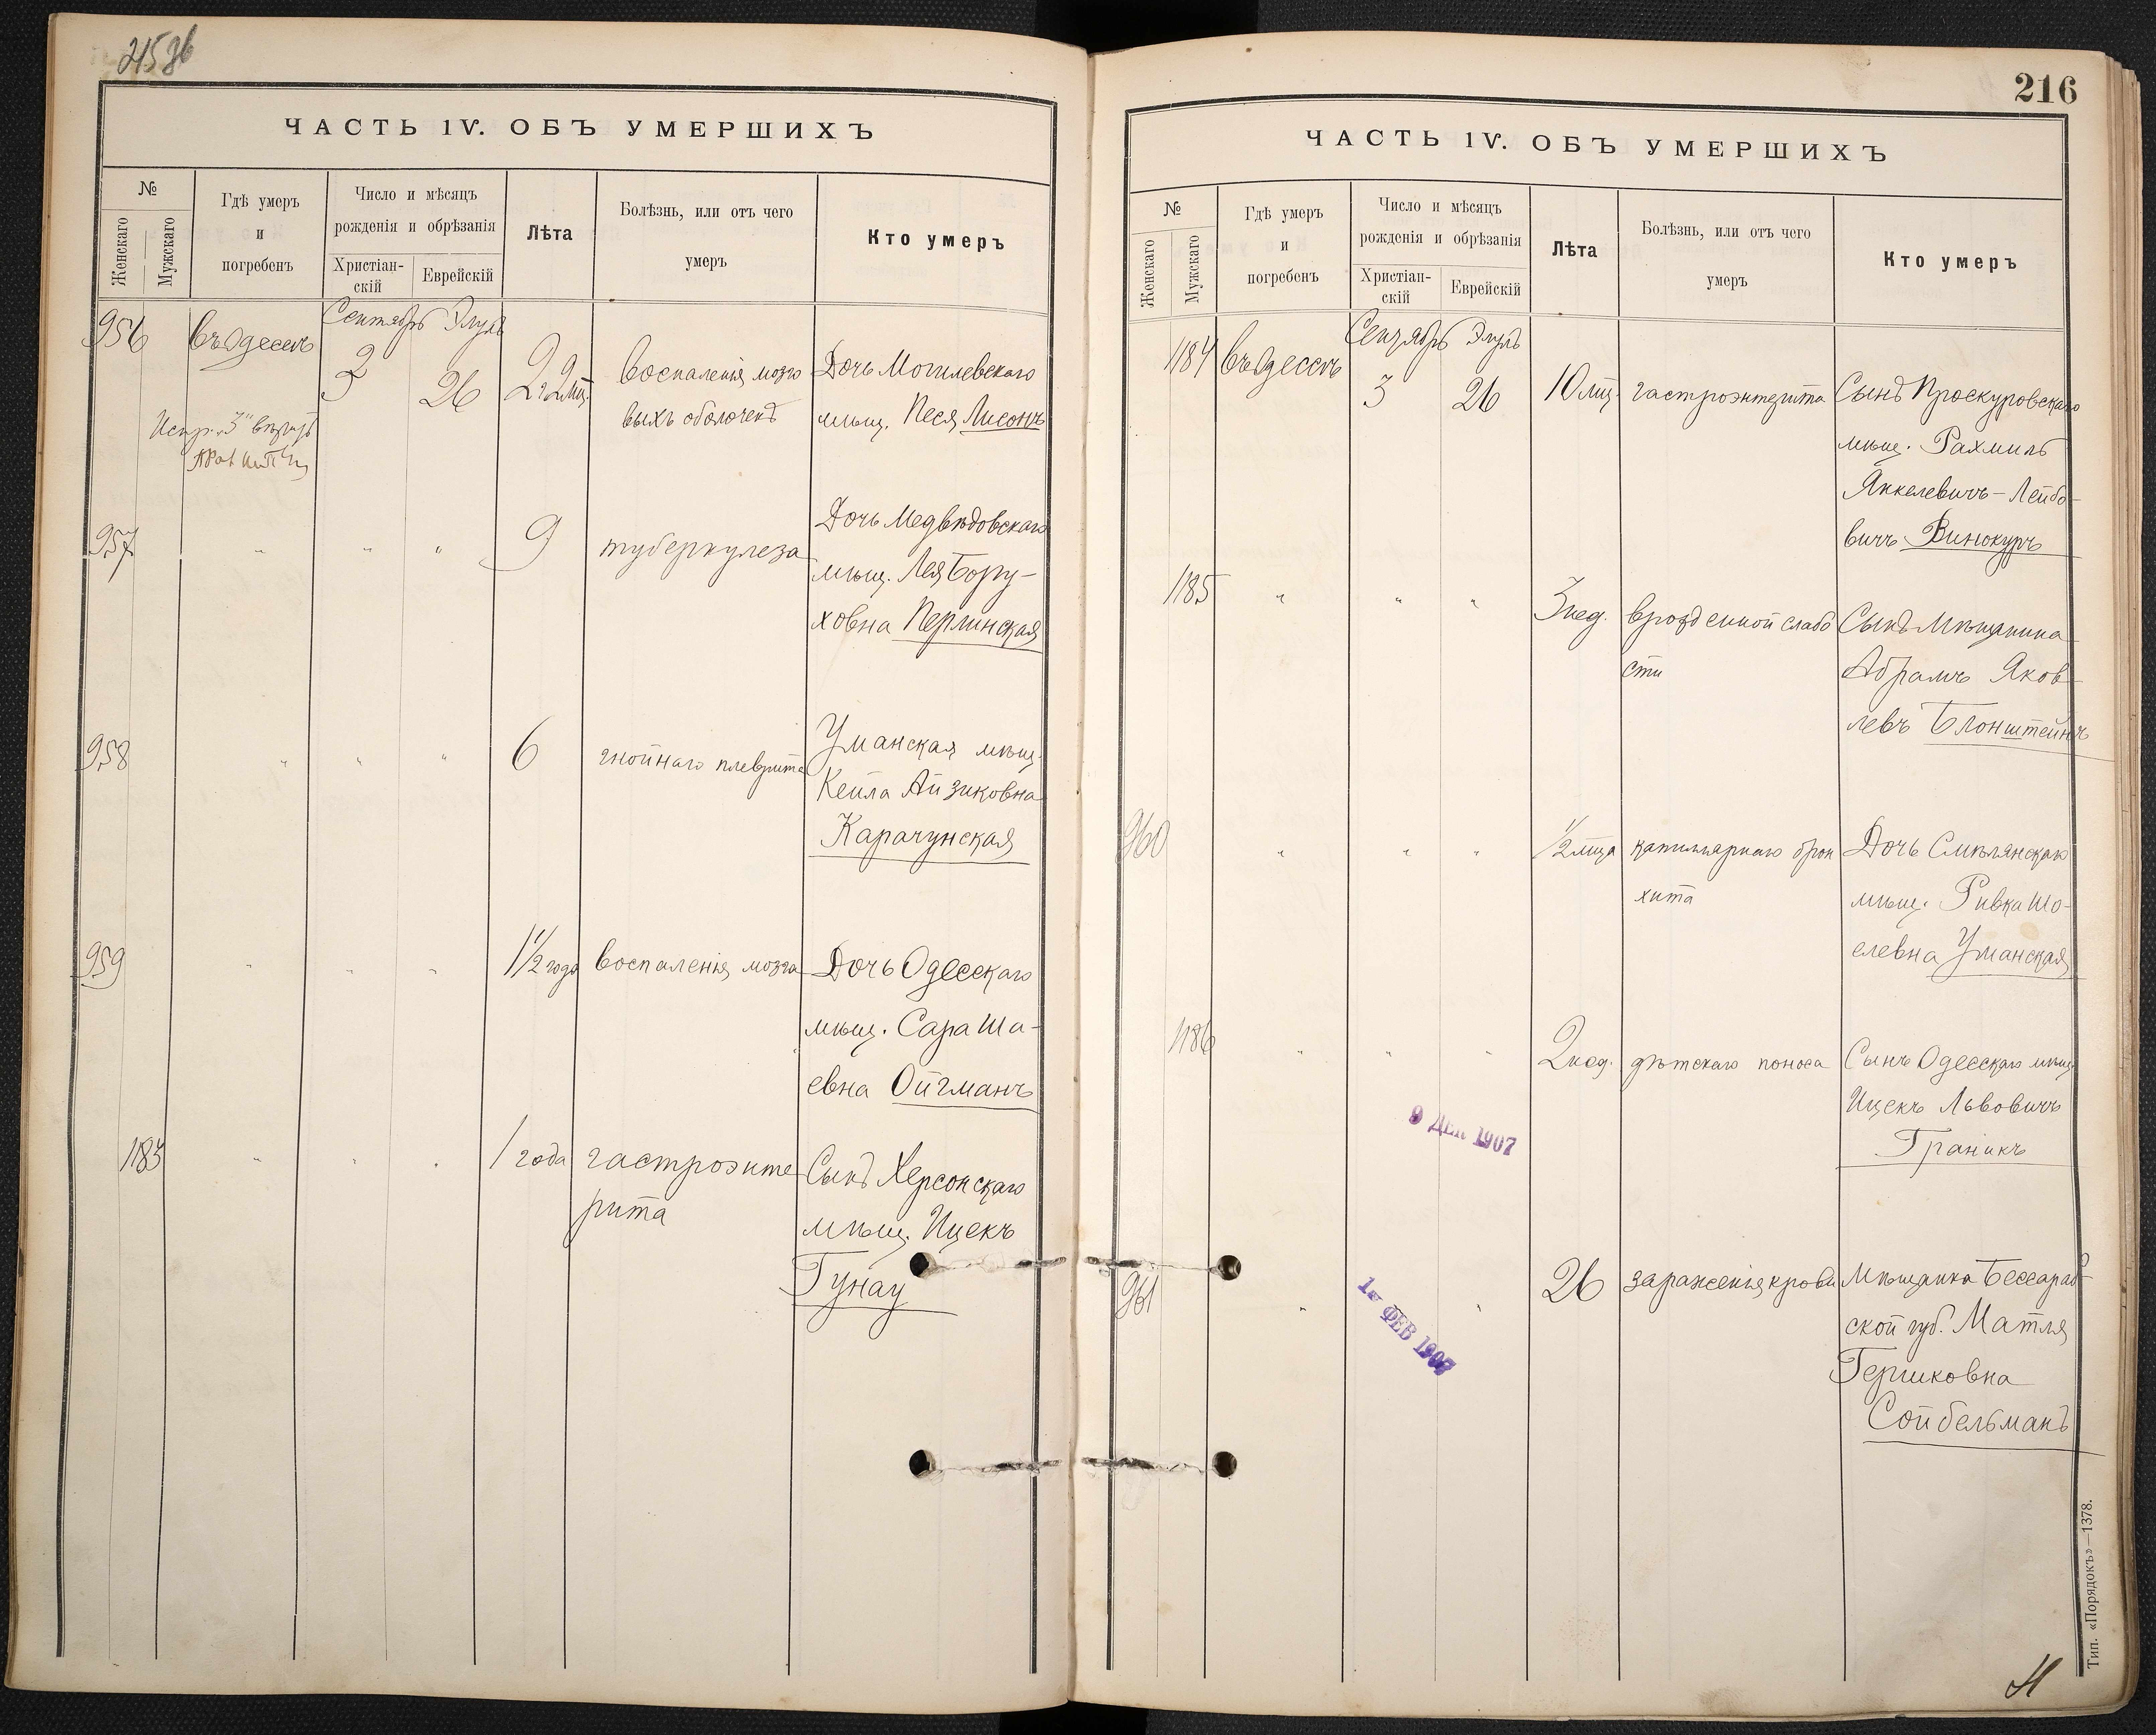 215 об
ЧАСТЬ IV. ОБЪ УМЕРШИХЪ
№
Женскаго
Мужскаго
Гдѣ умеръ
и
погребенъ
Число и мѣсяцъ
рожденія и обрѣзанія
Христіан-
скій
Еврейскій
Лѣта
Болѣзнь, или отъ чего
умеръ
Кто умеръ
Сентябрь Элулъ
956 въ Одессѣ 3 26 2 г 2 мц. воспаленія мозго Дочь Могилевскаго
выхъ оболочекъ мѣщ. Песя Лисонъ
Испр. „3" вѣрно
957 " " " 9 туберкулеза Дочь Медвѣдовскаго
мѣщ. Лея Бору-
ховна Перлинская
958 " " " 6 гнойнаго плеврита Уманская мѣщ.
Кейла Айзиковна
Карачунская
959 " " " 1½ года воспаленія мозга Дочь Одесскаго
мѣщ. Сара Ша-
евна Ойгманъ
1183 " " " 1 года гастроэнте Сынъ Херсонскаго
рита мѣщ. Ицекъ
Гунау
216
ЧАСТЬ IV. ОБЪ УМЕРШИХЪ
№
Женскаго
Мужскаго
Гдѣ умеръ
и
погребенъ
Число и мѣсяцъ
рожденія и обрѣзанія
Христіан-
скій
Еврейскій
Лѣта
Болѣзнь, или отъ чего
умеръ
Кто умеръ
Сентябрь Элулъ
1184 въ Одессѣ 3 26 10 мц. гастроэнтерита Сынъ Проскуровскаго
мѣщ. Рахмиль
Янкелевичъ-Лейбо-
вичъ Винокуръ
1185 " " " 3 нед. врожденной слабо Сынъ мѣщанина
сти Абрамъ Яков-
левъ Блонштейнъ
960 " " " ½ мца капиллярнаго брон Дочь Смѣлянскаго
хита мѣщ. Ривка Шо-
елевна Уманская
1186 " " " 2 нед. дѣтскаго поноса Сынъ Одесскаго мѣщ.
Ицекъ Львовичъ
Граникъ
9 ДЕК 1907
961 " " 26 зараженія крови Мѣщанка Бессараб-
1 ФЕВ 1907
ской губ. Матля
Гершковна
Сойбельманъ
Тип. «Порядокъ»—1378.